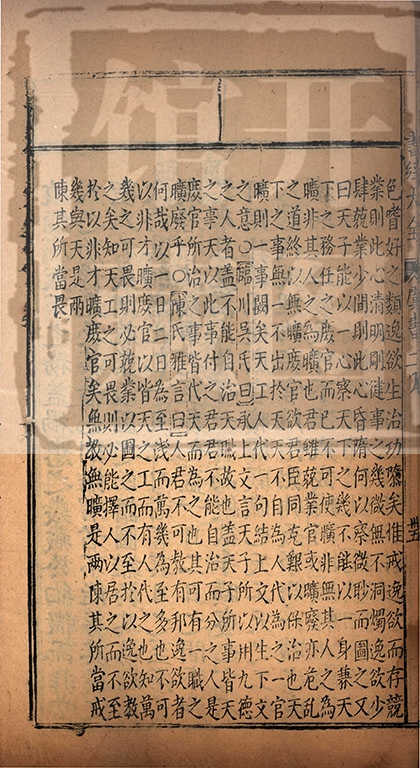 色嗜好之類逸欲生治功隳矣惟戒逸欲而存兢
業則此心清明剛健事之幾微無不洞燭逸欲少
肆兢業少間則此心昏惰何以察微眇而圖之又
曰天子能以一心察天下之幾不能以一身兼天
下之務任之庶官而已不可使幾或非其人之天
曠非才之人為曠官也君雖兢業官或曠廢亦危亂
之道終以無曠庶官欲君臣同克艱以保治也天
下之事無不出於天天工人代一句結上文生下文官
曠則一事闕矣天工人代之自為代之以
之意〇臨川吳氏曰承上文言天子所以用九德
之人者蓋不能自治天職故也蓋天子所事皆天
之事天以此事付之天君不能自治而分之人是
庶官所治之事皆代天而為也其可有一職之
曠廢乎〇陳氏雅言曰人君不可教有邦逸欲者
何哉以一日二日為至淺而萬幾為至多也不可
以非才曠庶官以皆天之工而有人代之也知萬
幾之可畏則必兢業以圖之而不至於逸欲教
之矣知天工之可畏則必能擇人以居之而不至
於以非才曠庶官矣無教無曠是兩陳其所當戒
幾與天工是兩
陳其所當畏